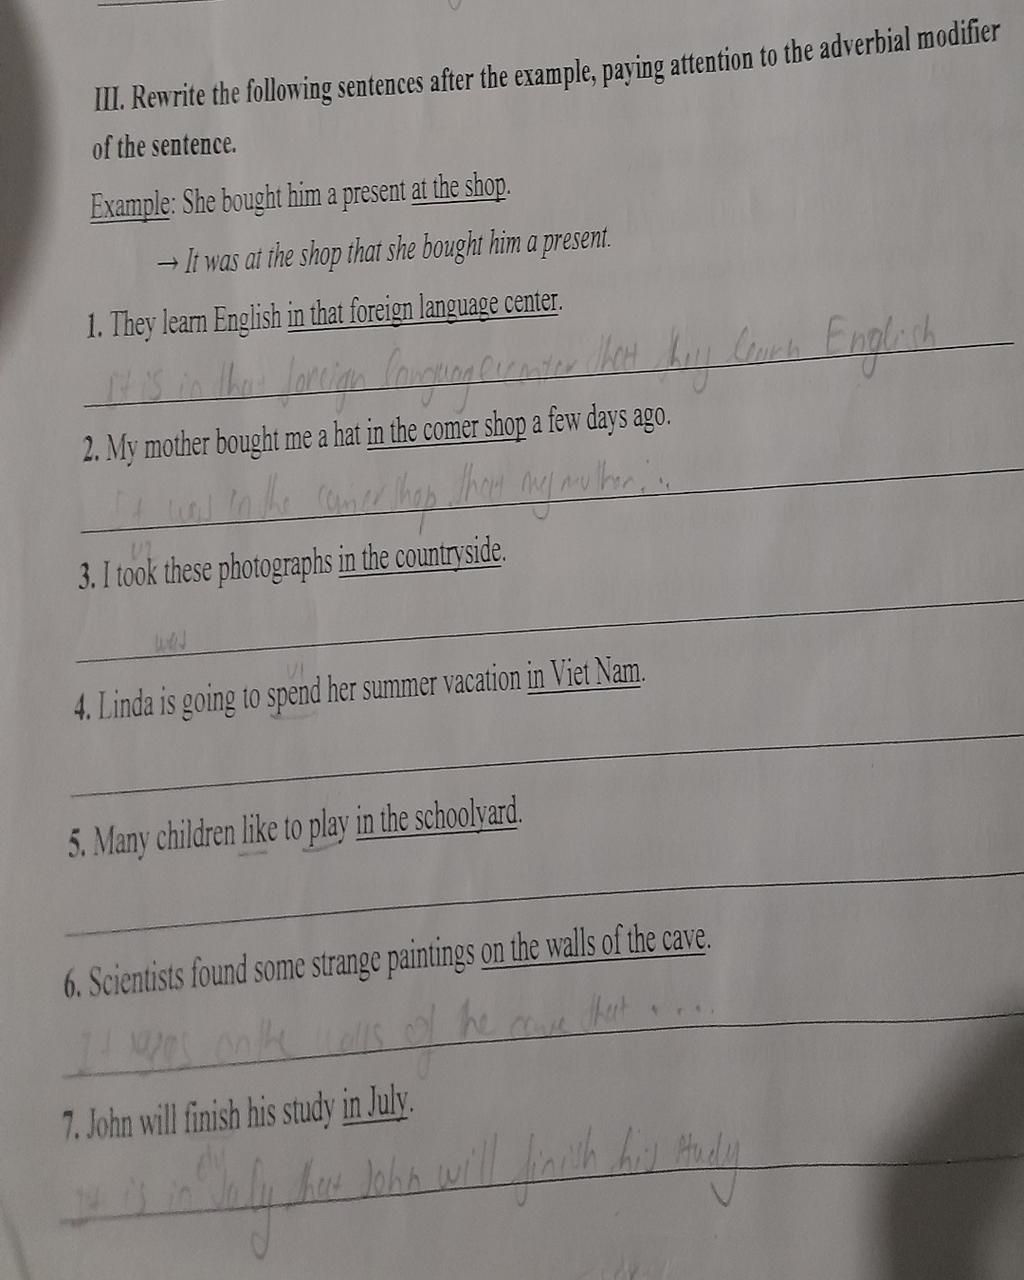 III. Rewrite the following sentences after the example, paying attention to the adverbial modifier
of the sentence.
Example: She bought him a present at the shop.
→ It was at the shop that she bought him a present.
1. They learn English in that foreign language center.
It is in that foreign language center that they learn English
2. My mother bought me a hat in the comer shop a few days ago.
It was in the corner shop that my mother...
3. I took these photographs in the countryside.
was
4. Linda is going to spend her summer vacation in Viet Nam.
5. Many children like to play in the schoolyard.
6. Scientists found some strange paintings on the walls of the cave.
It was on the walls of the cave that ....
7. John will finish his study in July.
It is in July that John will finish his study